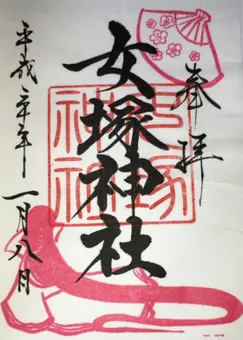 奉拝
女塚神社
平成三十年
一月八日
女塚
神社